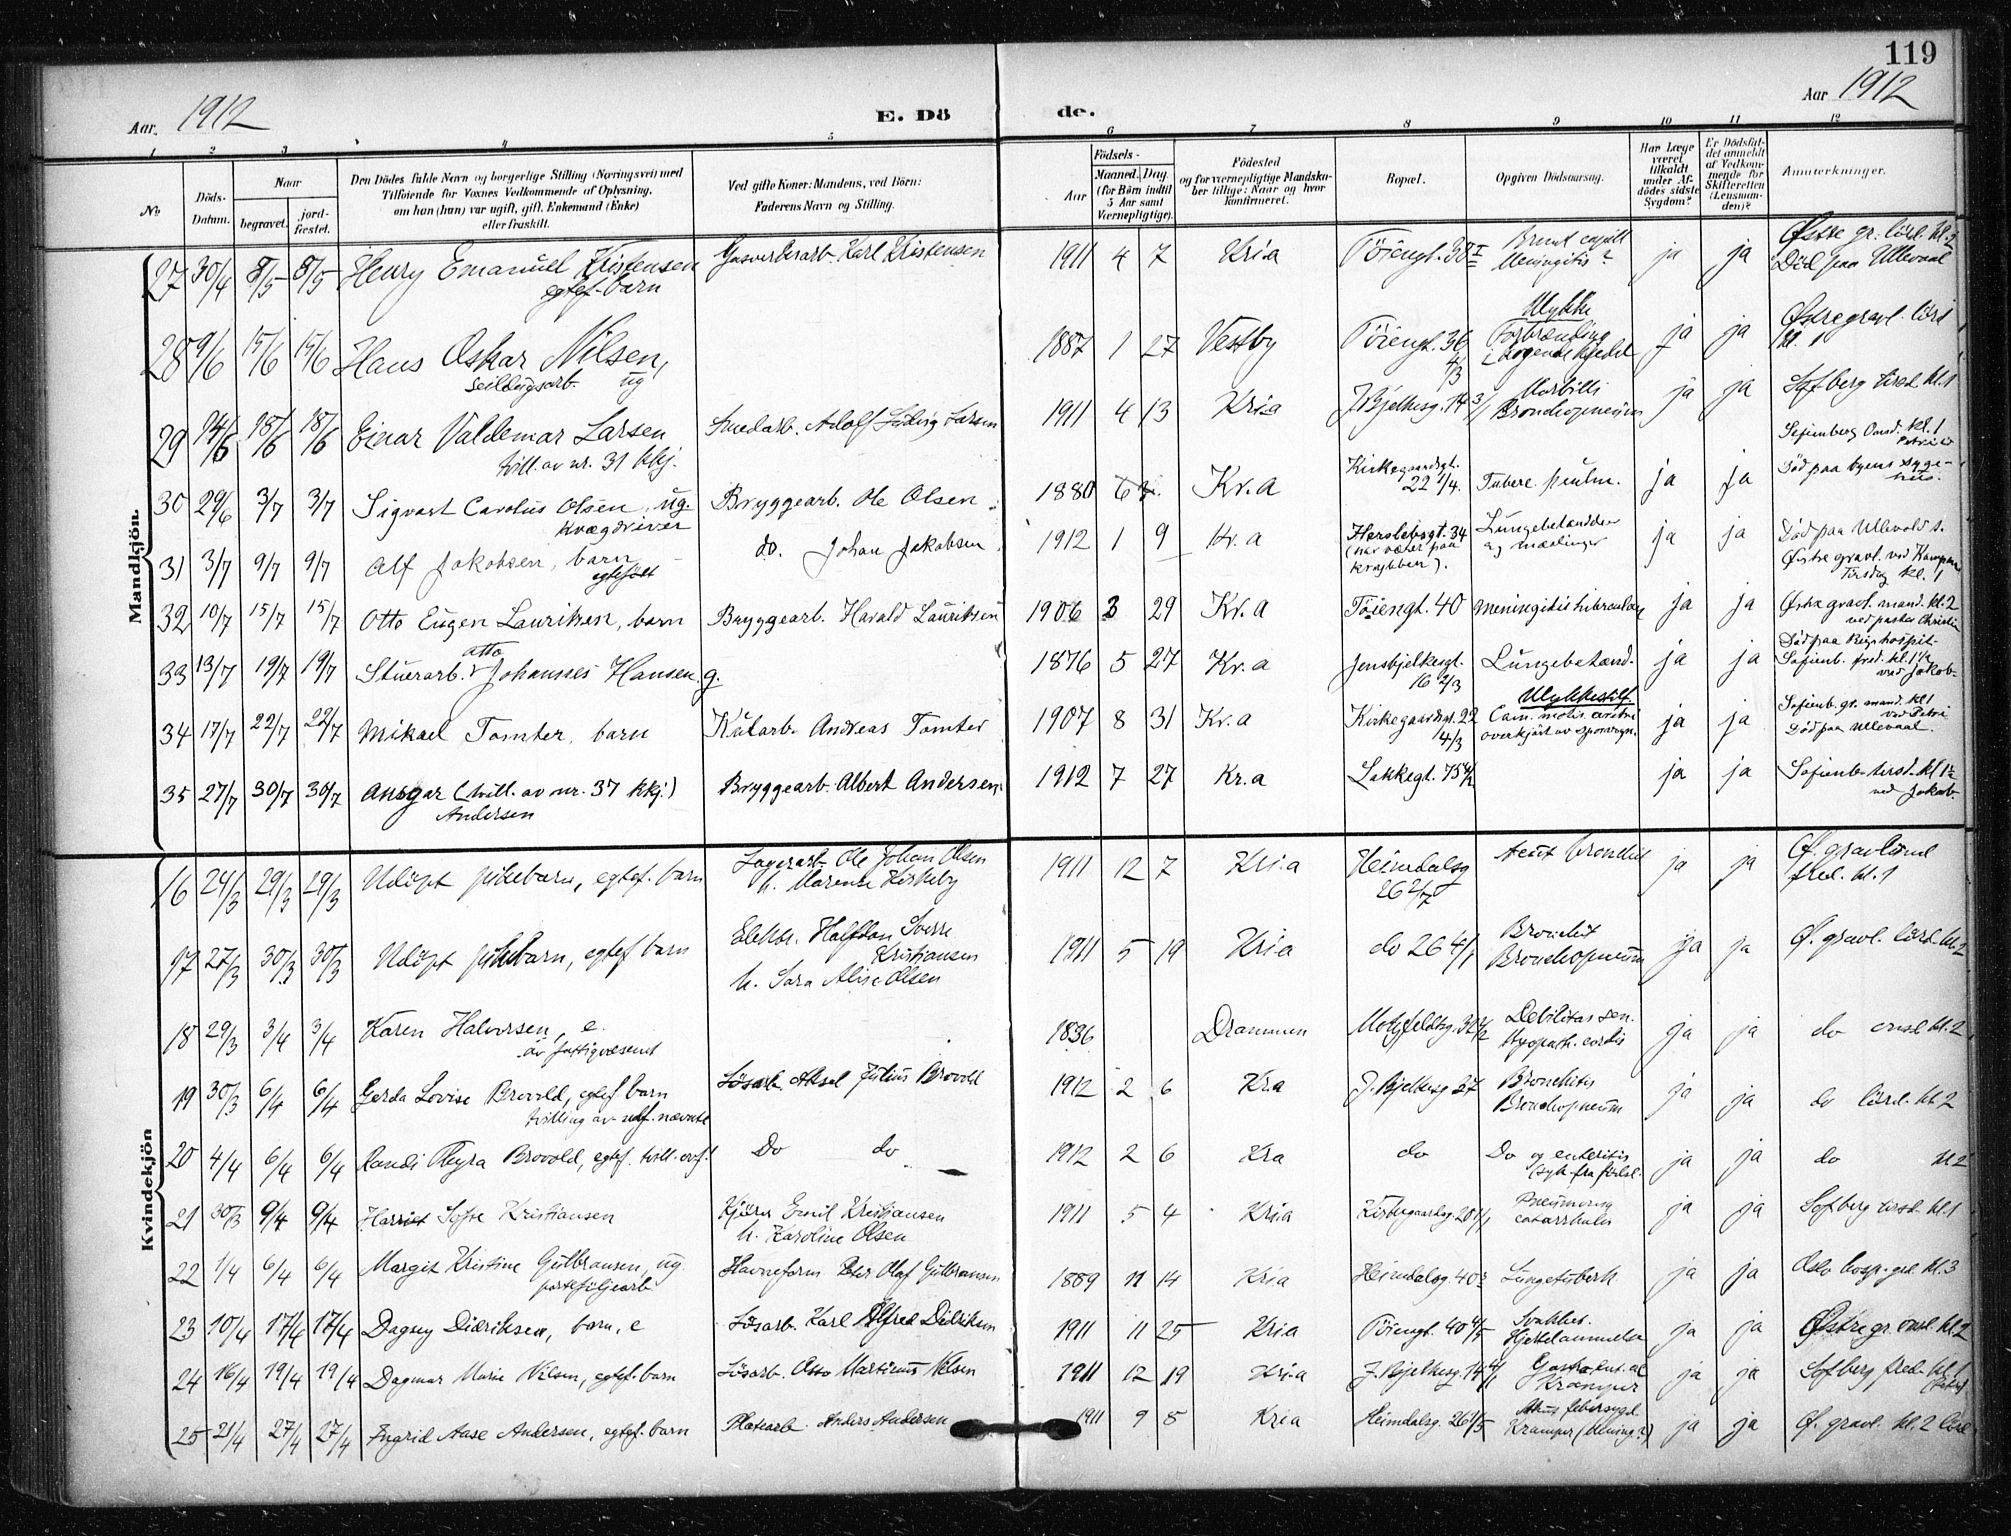 119
Aar. 1912
E. Dö de.
Aar 1912
1 2 3 4 5 6 7 8 9 10 11 12
No
Döds-Datum.
Naar
begravet. jord-fæstet.
Den Dödes fulde Navn og borgerlige Stilling (Næringsvei) med
Tilföiende for Voxnes Vedkommende af Oplysning,
om han (hun) var ugift, gift, Enkemand (Enke)
eller fraskilt.
Ved gifte Koner: Mandens, ved Börn:
Faderens Navn og Stilling.
Födsels-
Aar
Maaned. Dag
(for Börn indtil
5 Aar samt
Værnepligtige).
Födested
og for værnepligtige Mandskaber tillige: Naar og hvor
konfirmeret.
Bopæl.
Opgiven Dödsaarsag.
Har Læge
været
tilkaldt
under Afdödes sidste
Sygdom?
Er Dödsfaldet anmeldt
af Vedkommende for
Skifteretten
(Lensmanden)?
Anmærkninger.
Mandkjön.
27 30/4 8/5 8/5 Henry Emanuel Kristensen Gasverksarb. Karl Kristensen 1911 4 7 Kria Töiengt. 38 ja ja Østre gr. lörd. kl. 2
egtef. barn Meningitis? Död paa Ullevaal
28 9/6 15/6 15/6 Hans Oskar Nilsen, 1887 1 27 Vestby Töiengt. 36 4/3 Ulykke Forbrænding ja ja Østre gravl. lörd
seildugsarb. ug i kogende kjedel kl. 1
29 14/6 18/6 18/6 Einar Valdemar Larsen Smedarb. Adolf Ludvig Larsen 1911 4 13 Kria J. Bjelkesg. 14 3/1 Morbilli Bronchopneum ja ja Sofberg tirsd. kl. 1
tvill. av nr. 31 kkj.
30 29/6 3/7 3/7 Sigvart Carolus Olsen, ug. Bryggearb. Ole Olsen 1880 6 Kr.a Kirkegaardsgt. 22 1/4. Tuberc. pulm. ja ja Sofienberg Onsd. kl. 1
kvægdriver Död paa byens sygehus.
31 3/7 9/7 9/7 Alf Jakobsen, barn do. Johan Jakobsen 1912 1 9 Kr.a Herslebsgt. 34 Lungebetændelse ja ja Död paa Ullevold s.
egtefödt (har været paa krybben). og mæslinger Østre gravl. ved Kampen Tirsdag kl. 1
32 10/7 15/7 15/7 Otto Eugen Lauriksen, barn Bryggearb. Harald Lauriksen 1906 3 29 Kr.a Töiengt. 40 Meningitis ja ja Østre gravl. mand. kl. 2
ved pastor Christie
33 13/7 19/7 19/7 Stuerarb. Otto Johannes Hansen. g. 1876 5 27 Kr.a Jensbjelkesgt. 16 2/3 Lungebetænd. ja ja Död paa Rigshospit-
Sofienb. fred. kl. 1 1/2 ved Jakob
34 17/7 22/7 22/7 Mikael Tomter, barn Andreas Tomter 1907 8 31 Kr.a Kirkegaardsgt. 22 4/3 Ulykkestilf ja ja Sofienb. gr. mand. kl. 1
overkjört av sporvogn. ved Petri
Död paa Ullevaal.
35 27/7 30/7 30/7 Ansgar (tvill. av nr. 37 kkj.) Bryggearb. Albert Andersen. 1912 7 27 Kr.a Lakkegt. 75 ja ja Sofienb. tirsd. kl 1 1/2
Andersen ved Jakob.
Kvindekjön
16 24/3 29/3 29/3 Udöpt pikebarn, egtef. barn Lagerarb. Ole Johan Olsen 1911 12 7 Kria Heimdalsg 26 2/7 Acut bronchit ja ja Ø. gravlund
h. Marense Kirkeby fred. kl. 1
17 27/3 30/3 30/3 Udöpt pikebarn, egtef barn Elektr. Halfdan Sverre 1911 5 19 Kria do 26 4/1 Bronchit ja ja Ø. gravl. lörd. kl. 2
Kristiansen Bronchopneum
h. Sara Alise Olsen
18 29/3 3/4 3/4 Karen Halvorsen, e. 1836 Drammen Motzfeldtsg. 32 Debilitas sen. ja ja do onsd kl. 2
av fattigvæsenet cordis
19 30/3 6/4 6/4 Gerda Lovise Brovold, egtef barn Lösarb. Aksel Julius Brovold 1912 2 6 Kra J. Bjelkesg 37 Bronchitis ja ja do lörd. kl. 2
tvilling av ndf. nævnte Bronchopneum
20 4/4 6/4 6/4 Randi Thyra Brovold, egtef. tvill. ovf. Do do 1912 2 6 Kra do Do og enteritis ja ja do kl 2
syk fra födsl.
21 30/3 9/4 9/4 Harriet Sofie Kristiansen Kjörer Emil Kristiansen 1911 5 4 Kria Kirkegaardsg. 20 1/1 Pneumonia ja ja Sofberg tirsd. kl. 1
h. Karoline Olsen catarrhalis
22 1/4 6/4 6/4 Margit Kristine Gulbransen, ug. Havneform Peter Olaf Gulbransen 1889 11 14 Kria Heimdalsg. 40 Lungetuberk ja ja Oslo hosp. grl. kl. 3
porteföljearb
23 10/4 17/4 17/4 Dagny Didriksen, barn, e Lösarb. Karl Alfred Didriksen 1911 11 25 Kria Töiengt. 40 4/5 Svakhet. ja ja Østre gr. onsd. kl. 2
Hjertelammelse
24 16/4 19/4 19/4 Dagmar Marie Nilsen, egtef. barn Lösarb. Otto Martinus Nilsen 1911 12 19 Kria J. Bjelkesg. 14 4/1 Gastroent. ac ja ja Sofberg fred. kl. 1
Kramper
25 21/4 27/4 27/4 Ingrid Aase Andersen, egtef. barn Platearb. Anders Andersen 1911 9 8 Kria Heimdalsg. 26 1/5 Akut febersygd. ja ja Ø. gravl. kl. 2 lörd
Kramper (Mening?)